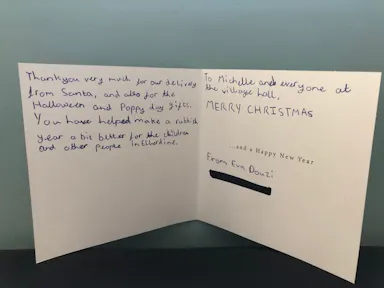 Thankyou very much for our delivery
from Santa, and also for the
Halloween and Poppy day gifts.
You have helped make a rubbish
year a bit better for the children
and other people in Ellerdine.
To Michelle and everyone at
the village hall,
MERRY CHRISTMAS
...and a Happy New Year
From Eva